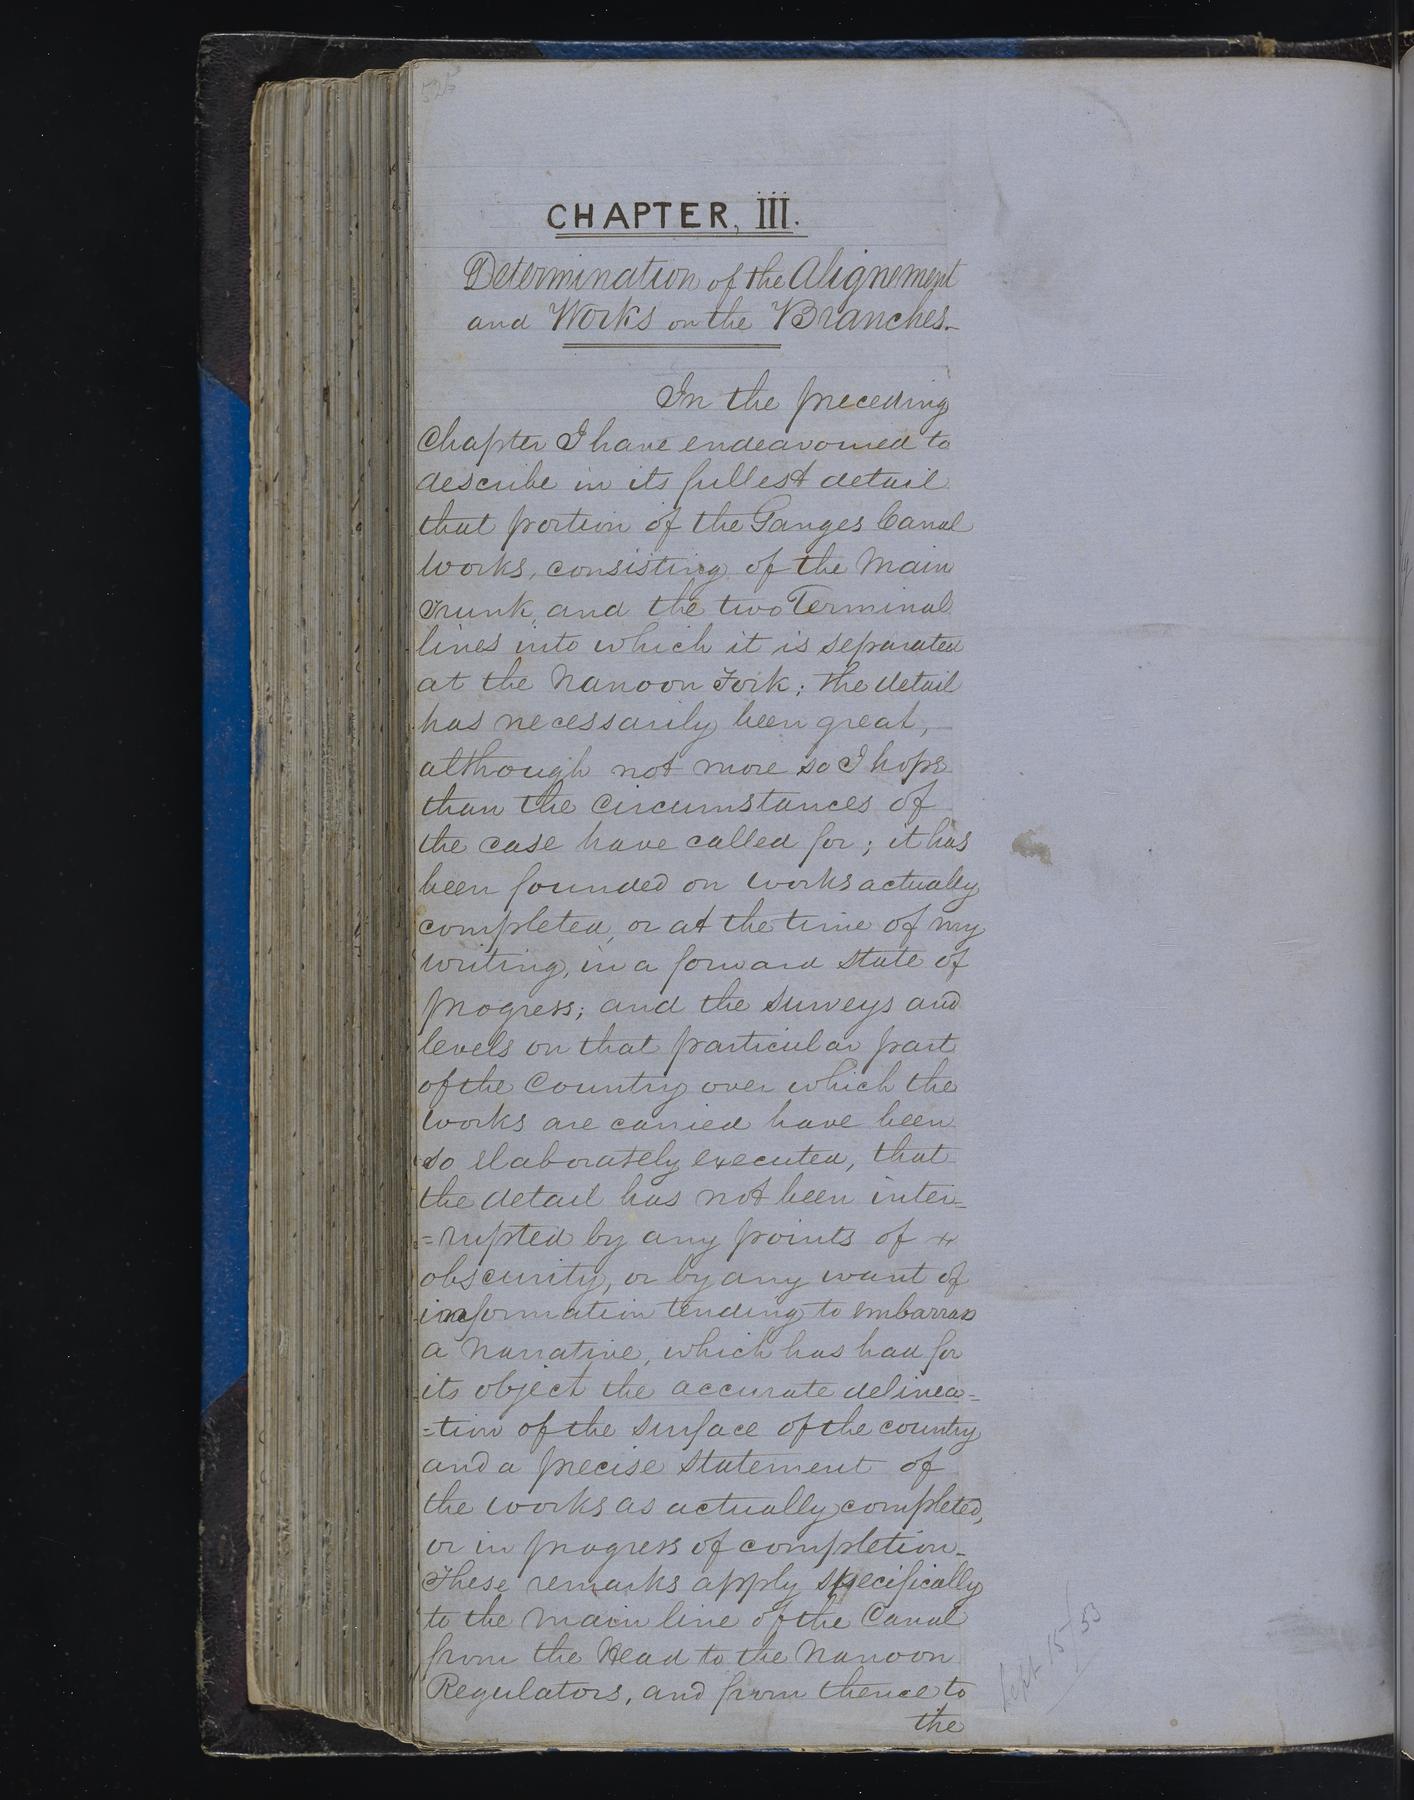 525
CHAPTER, III.
Determination of the Alignement
and Works on the Branches.
In the preceding
Chapter I have endeavoured to
describe in its fullest detail
that portion of the Ganges Canal
Works, consisting of the Main
Trunk, and the two Terminal
lines into which it is separated
at the Nanoon Fork; the detail
has necessarily been great,
although not more so I hope
than the circumstances of
the case have called for; it has
been founded on works actually
completed, or at the time of my
writing, in a forward state of
progress; and the surveys and
levels on that particular part
of the Country over which the
works are carried have been
so elaborately executed, that
the detail has not been inter=
=rupted by any points of
obscurity, or by any want of
information tending to embarrass
a Narrative, which has had for
its object the accurate delinea=
=tion of the surface of the country
and a precise statement of
the works as actually completed,
or in progress of completion.
These remarks apply specifically
to the main line of the Canal
from the Head to the Nanoon
Regulators, and from thence to
the
Sept 15/53